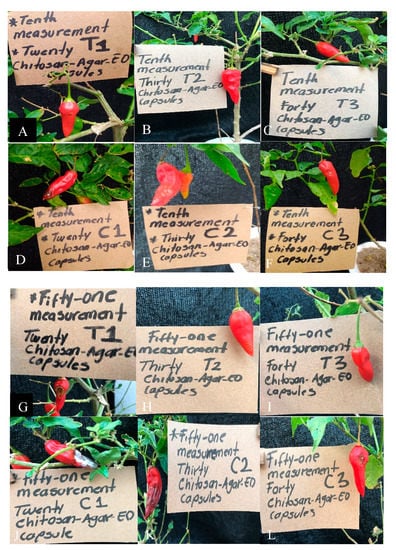 *Tenth
measurement
*Twenty T1
Chitosan-Agar-EO
capsules
A
Tenth
measurement
Thirty T2
Chitosan-Agar-EO
capsules
B
Tenth
measurement
Forty T3
Chitosan-Agar-EO
capsules
C
*Tenth
measurement
*Twenty C1
Chitosan-Agar-EO
capsules
D
*Tenth
measurement
*Thirty C2
Chitosan-Agar-EO
capsules
E
*Tenth
measurement
*Forty C3
Chitosan-Agar-EO
capsules
F
*Fifty-one
measurement
Twenty T1
Chitosan-Agar-EO
capsules
G
Fifty-one
measurement
Thirty T2
Chitosan-Agar-EO
capsules
H
Fifty-one
measurement
Forty T3
Chitosan-Agar-EO
capsules
I
*Fifty-one
measurement
Twenty C1
Chitosan-Agar-EO
capsule
*Fifty-one
measurement
Thirty C2
Chitosan-Agar-EO
capsules
Fifty-one
measurement
Forty C3
Chitosan-Agar-EO
capsules
L